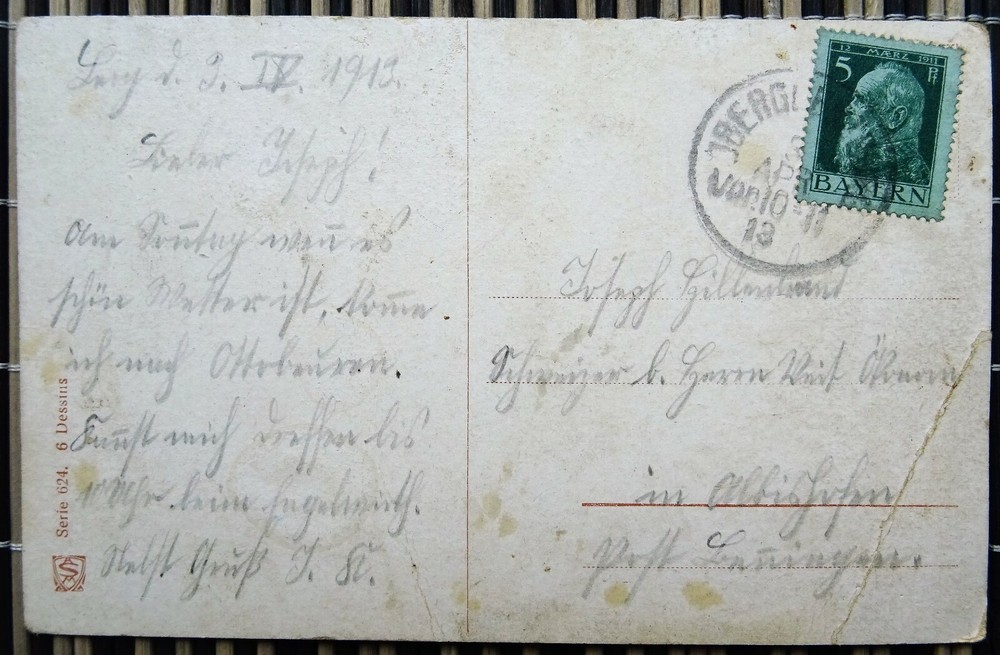 Berg d. 3. IV. 1913.
Lieber Joseph!
Am Sonntag wenn es
schön Wetter ist, komme
ich nach Ottobeuren.
Kannst mich treffen bis
Uhr beim Engelwirth.
Nebst Gruß J. K.
Serie 624. 6 Dessins
12 MÆRZ 1911
5 Pf
BAYERN
OBERG
Apr
Vor 10-11
13
Joseph Hillenbrand
Schweizer b. Herrn Veit Ökonom
in Albishofen
Post